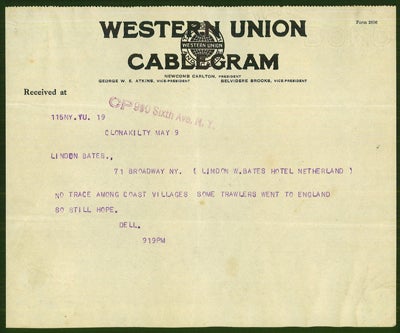 Form 2106
WESTERN UNION
WESTERN UNION
CABLEGRAM
NEWCOMB CARLTON, PRESIDENT
GEORGE W. E. ATKINS, VICE-PRESIDENT BELVIDERE BROOKS, VICE-PRESIDENT
Received at
CP 950 Sixth Ave, N. Y.
115NY.YU. 19
CLONAKILTY MAY 9
LINDON BATES.,
71 BROADWAY NY. ( LINDON W.BATES HOTEL NETHERLAND )
NO TRACE AMONG COAST VILLAGES SOME TRAWLERS WENT TO ENGLAND
SO STILL HOPE.
DELL.
919PM